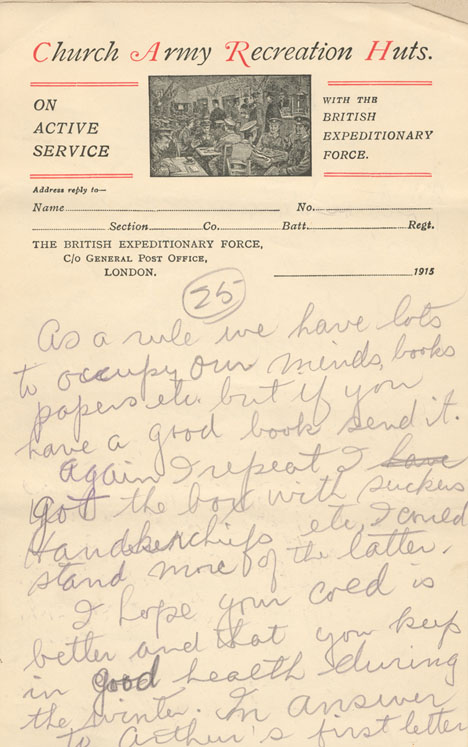 Church Army Recreation Huts.
ON
ACTIVE
SERVICE
WITH THE
BRITISH
EXPEDITIONARY
FORCE.
Address reply to—
Name No.
Section Co. Batt. Regt.
THE BRITISH EXPEDITIONARY FORCE,
C/o GENERAL POST OFFICE,
LONDON.
1915
25
As a rule we have lots
to occupy our minds, books
papers etc. but if you
have a good book send it.
Again I repeat I have
got the box with suckers
Handkerchiefs etc, I could
stand more of the latter.
I hope your cold is
better and that you keep
in good health during
the winter. In answer
to Arthur's first letter